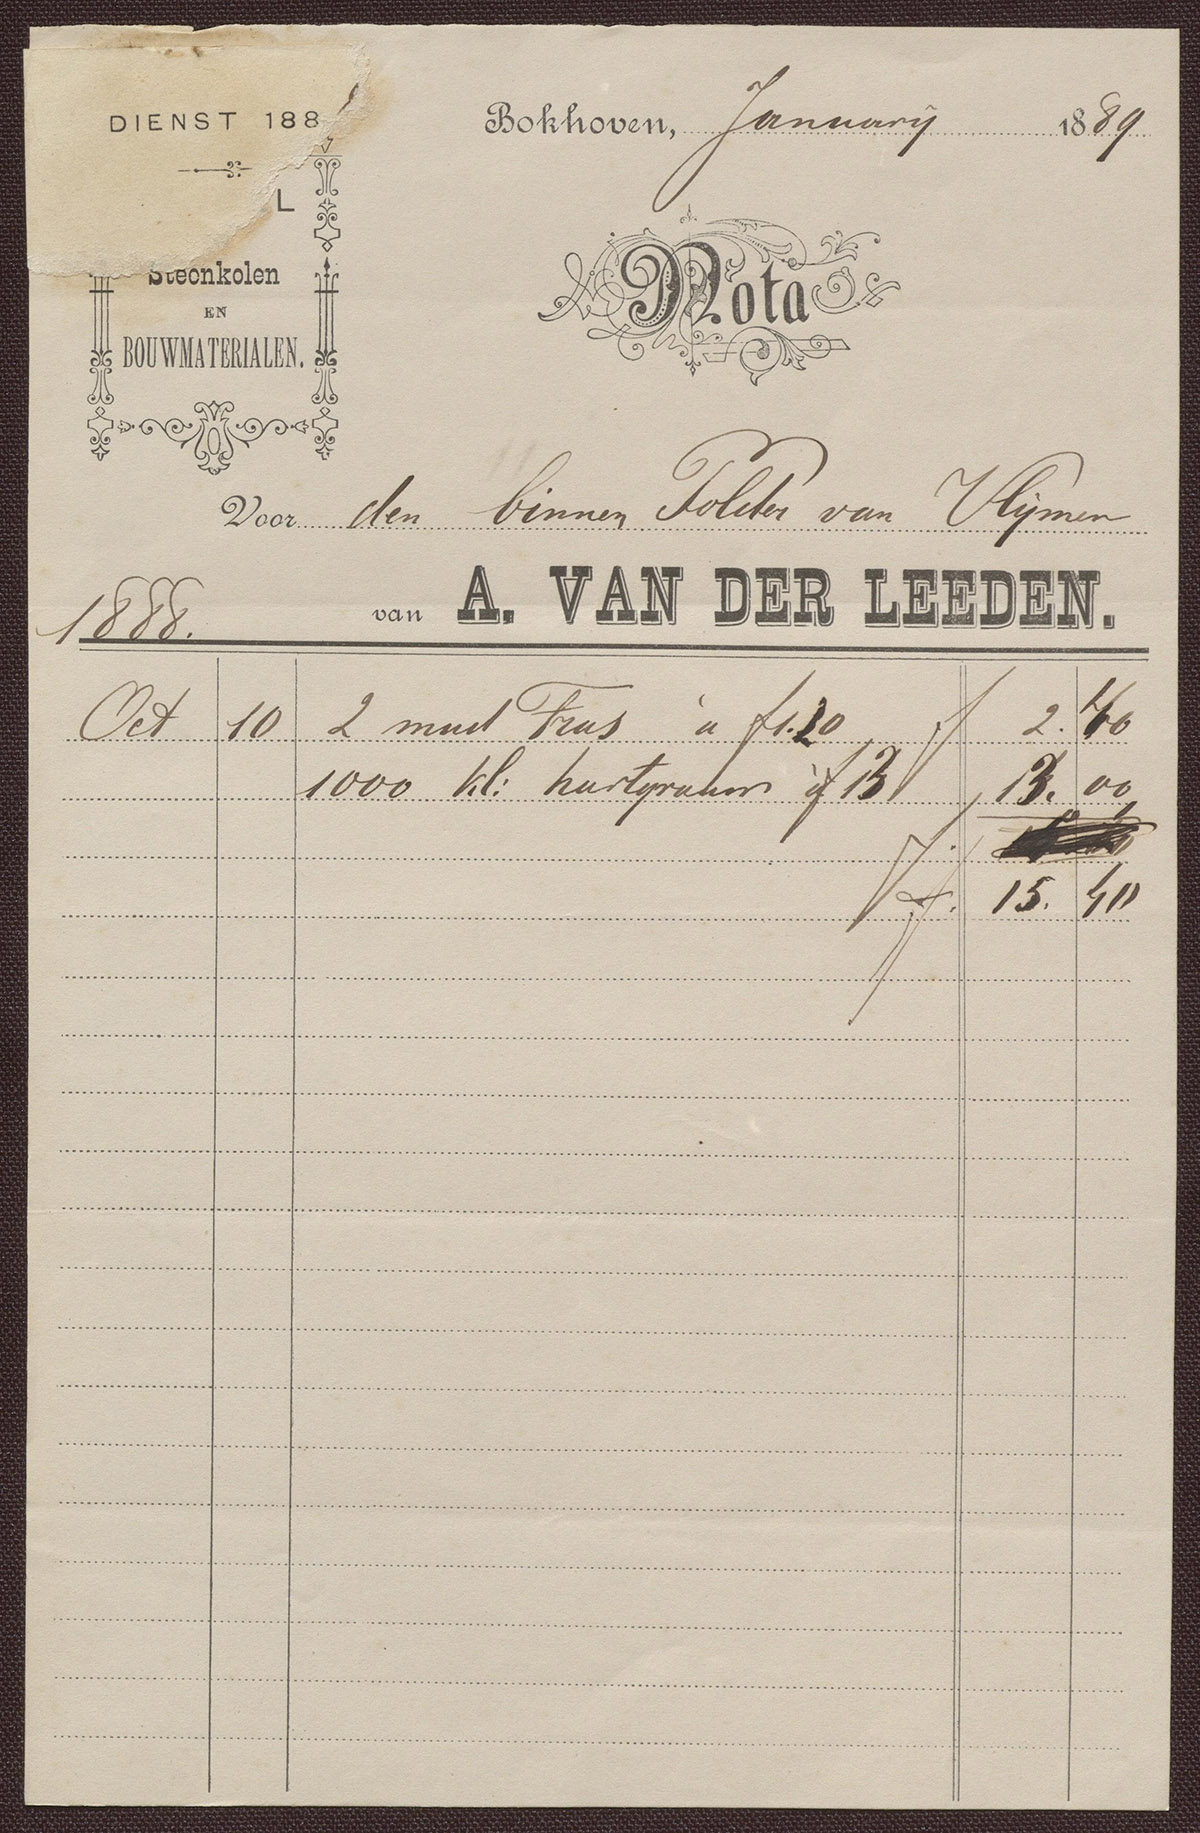 DIENST 188
L
Steenkolen
EN
BOUWMATERIALEN.
Bokhoven, January 1889
Nota
Voor den binnen Polder van Vlijmen
1888.
van A. VAN DER LEEDEN.
Oct 10 2 mud Tras à f 1.20 f 2.40
1000 kl: hartgrauw à f 13 13.00
f. 15.40